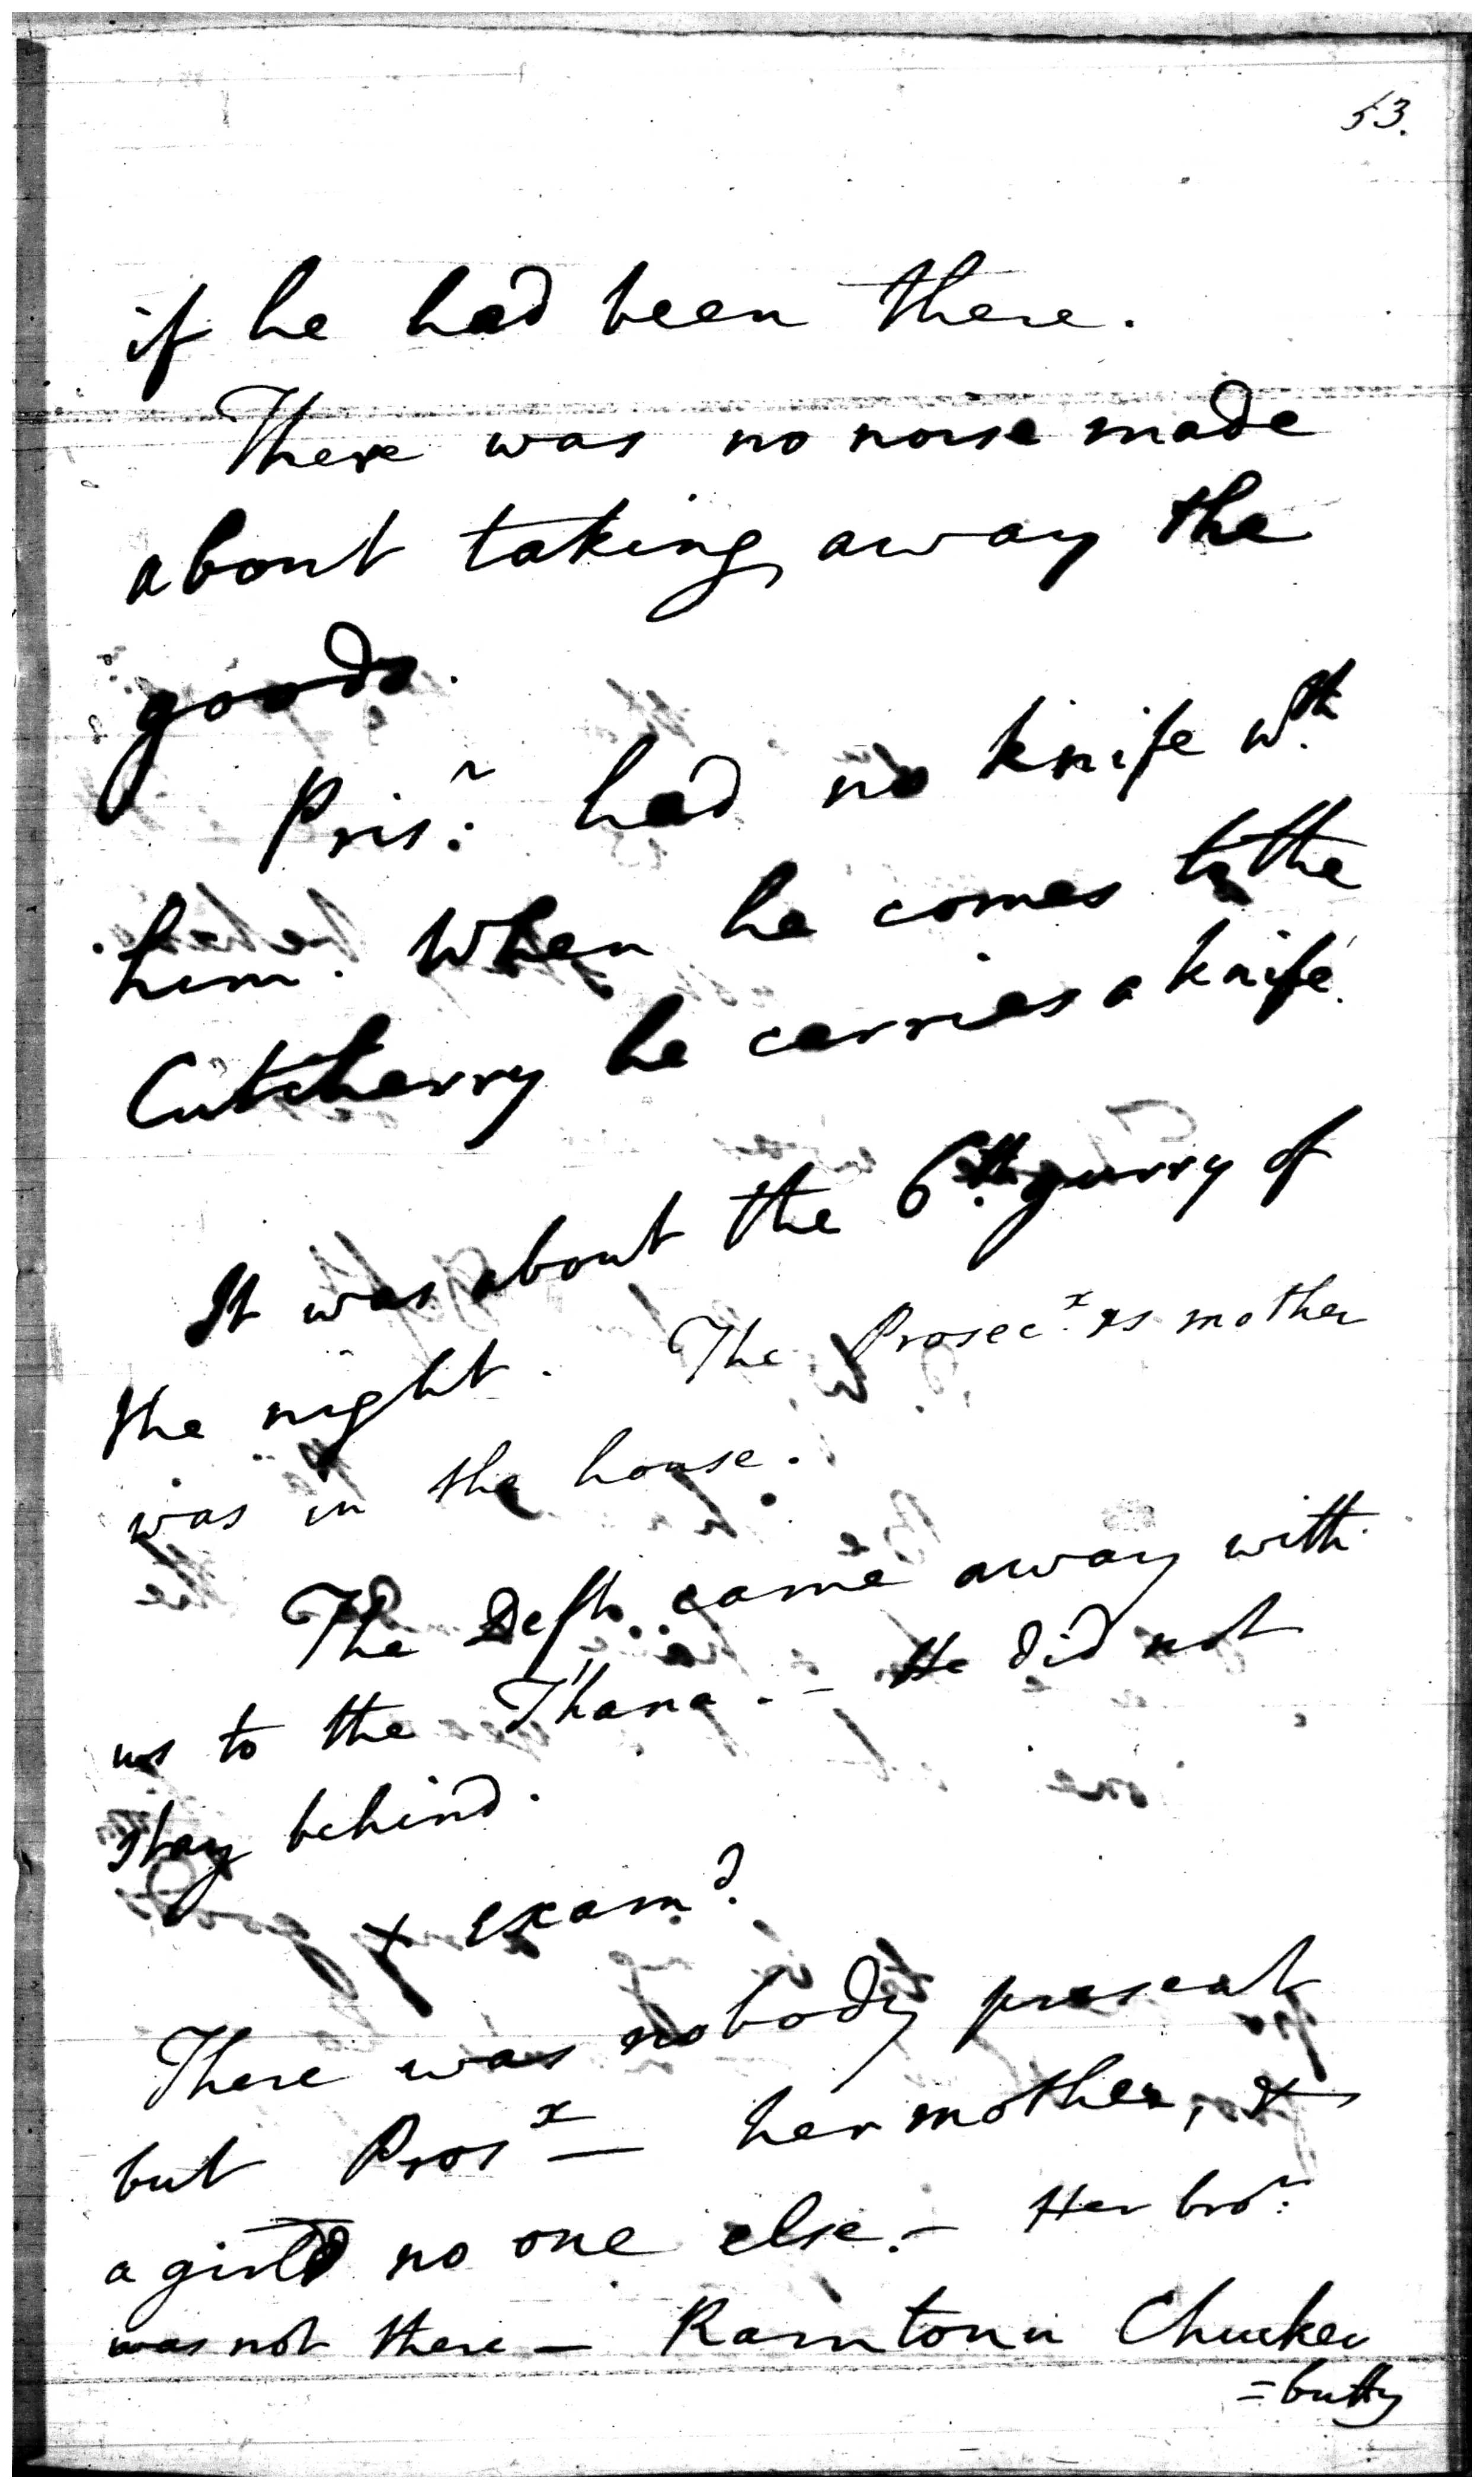 53.
if he had been there.
There was no noise made
about taking away the
goods.
Prisr. had no knife wth.
him. When he comes to the
Cutcherry he carries a knife.
It was about the 6th. gurry of
the night. The Prosecx.'s mother
was in the house.
The Deft. came away with
us to the Thana. - He did not
stay behind.
x examd.
There was nobody present
but Prosx — her mother, &
a girl no one else. - Her bror.
was not there — Ramtonu Chucker
=butty